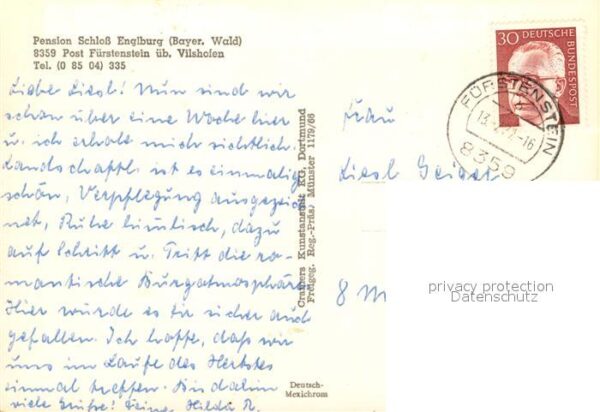 Pension Schloß Englburg (Bayer. Wald)
8359 Post Fürstenstein üb. Vilshofen
Tel. (0 85 04) 335
Liebe Liesl! Nun sind wir
schon über eine Woche hier
u. ich erhole mich sichtlich.
Landschaftl. ist es einmalig
schön, Verpflegung ausgezeich
net, Ruhe himmlisch, dazu
auf Schritt u. Tritt die ro-
mantische Burgatmosphäre.
Hier würde es Dir sicher auch
gefallen. Ich hoffe, daß wir
uns im Laufe des Herbstes
einmal treffen. Bis dahin
viele Grüße! Deine Hilda R.
Cramers Kunstanstalt KG, Dortmund
Freigeg. Reg.-Präs. Münster 1179/66
Deutsch-
Mexichrom
30 DEUTSCHE
BUNDESPOST
FÜRSTENSTEIN
8359
Frau
Liesl Geiger
8 M
privacy protection
Datenschutz